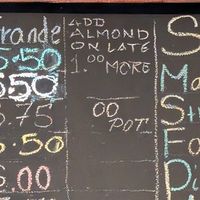 Grande
5.50
5.50
5.75
5.50
5.00
ADD
ALMOND
ON LATE
1.00 MORE
00
POT
S
Ma
S
F
D